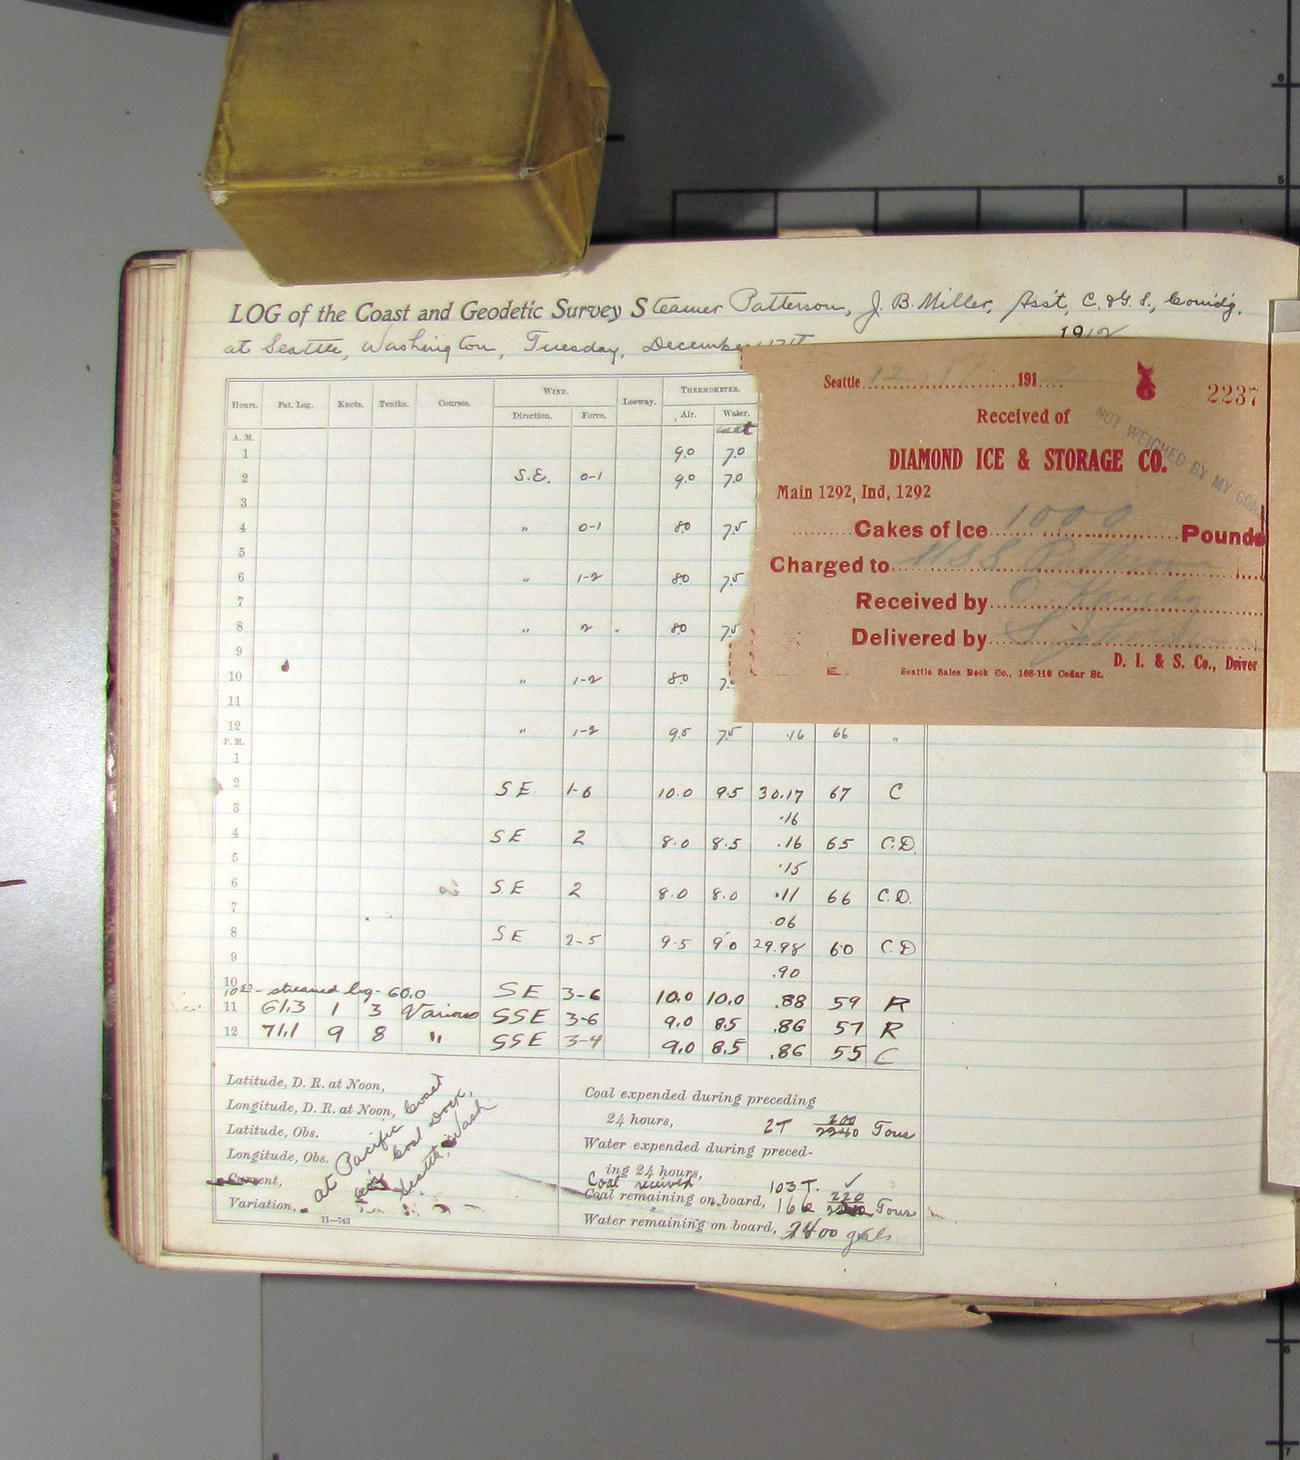 LOG of the Coast and Geodetic Survey Steamer Patterson, J. B. Miller, Ass't, C. & G. S., Comdg.
at Seattle, Washington, Tuesday, December 17th 1912
Seattle 12 17 191
2237
Received of
DIAMOND ICE & STORAGE CO.
NOT WEIGHED BY MY
Main 1292, Ind, 1292
Cakes of Ice 1000 Pounds
Charged to USS Patterson
Received by
Delivered by
D. I. & S. Co., Driver
Seattle Sales Book Co., 108-110 Cedar St.
Hours. Pat. Log. Knots. Tenths. Courses. WIND. Leeway. THERMOMETER.
Direction. Force. Air. Water.
A. M.
1 9.0 7.0
2 S.E. 0-1 9.0 7.0
3
4 " 0-1 80 7.5
5
6 " 1-2 80 7.5
7
8 " 2 80 7.5
9
10 " 1-2 80 7.
11
12 " 1-2 9.5 7.5 .16 66 "
P. M.
1
2 SE 1-6 10.0 9.5 30.17 67 C
3 .16
4 SE 2 8.0 8.5 .16 65 C.D.
5 .15
6 SE 2 8.0 8.0 .11 66 C.D.
7 .06
8 SE 2-5 9.5 9.0 29.98 60 C.D
9 .90
10 SE 3-6 10.0 10.0 .88 59 R
streamed log - 60.0
11 61.3 1 3 Various SSE 3-6 9.0 8.5 .86 57 R
12 71.1 9 8 " SSE 3-4 9.0 8.5 .86 55 C
Latitude, D. R. at Noon,
Longitude, D. R. at Noon,
Latitude, Obs.
Longitude, Obs.
Current,
Variation,
at Pacific Coast
Co's Coal Dock,
Seattle, Wash
11—743
Coal expended during preceding
24 hours, 2T 200/2240 Tons
Water expended during preced-
ing 24 hours,
Coal received 103 T. ✓
Coal remaining on board, 166 220 Tons
Water remaining on board, 2400 gals